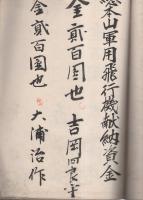 本山軍用飛行機献納資金
金貳百圓也 吉岡
金貳百圓也 大浦治作